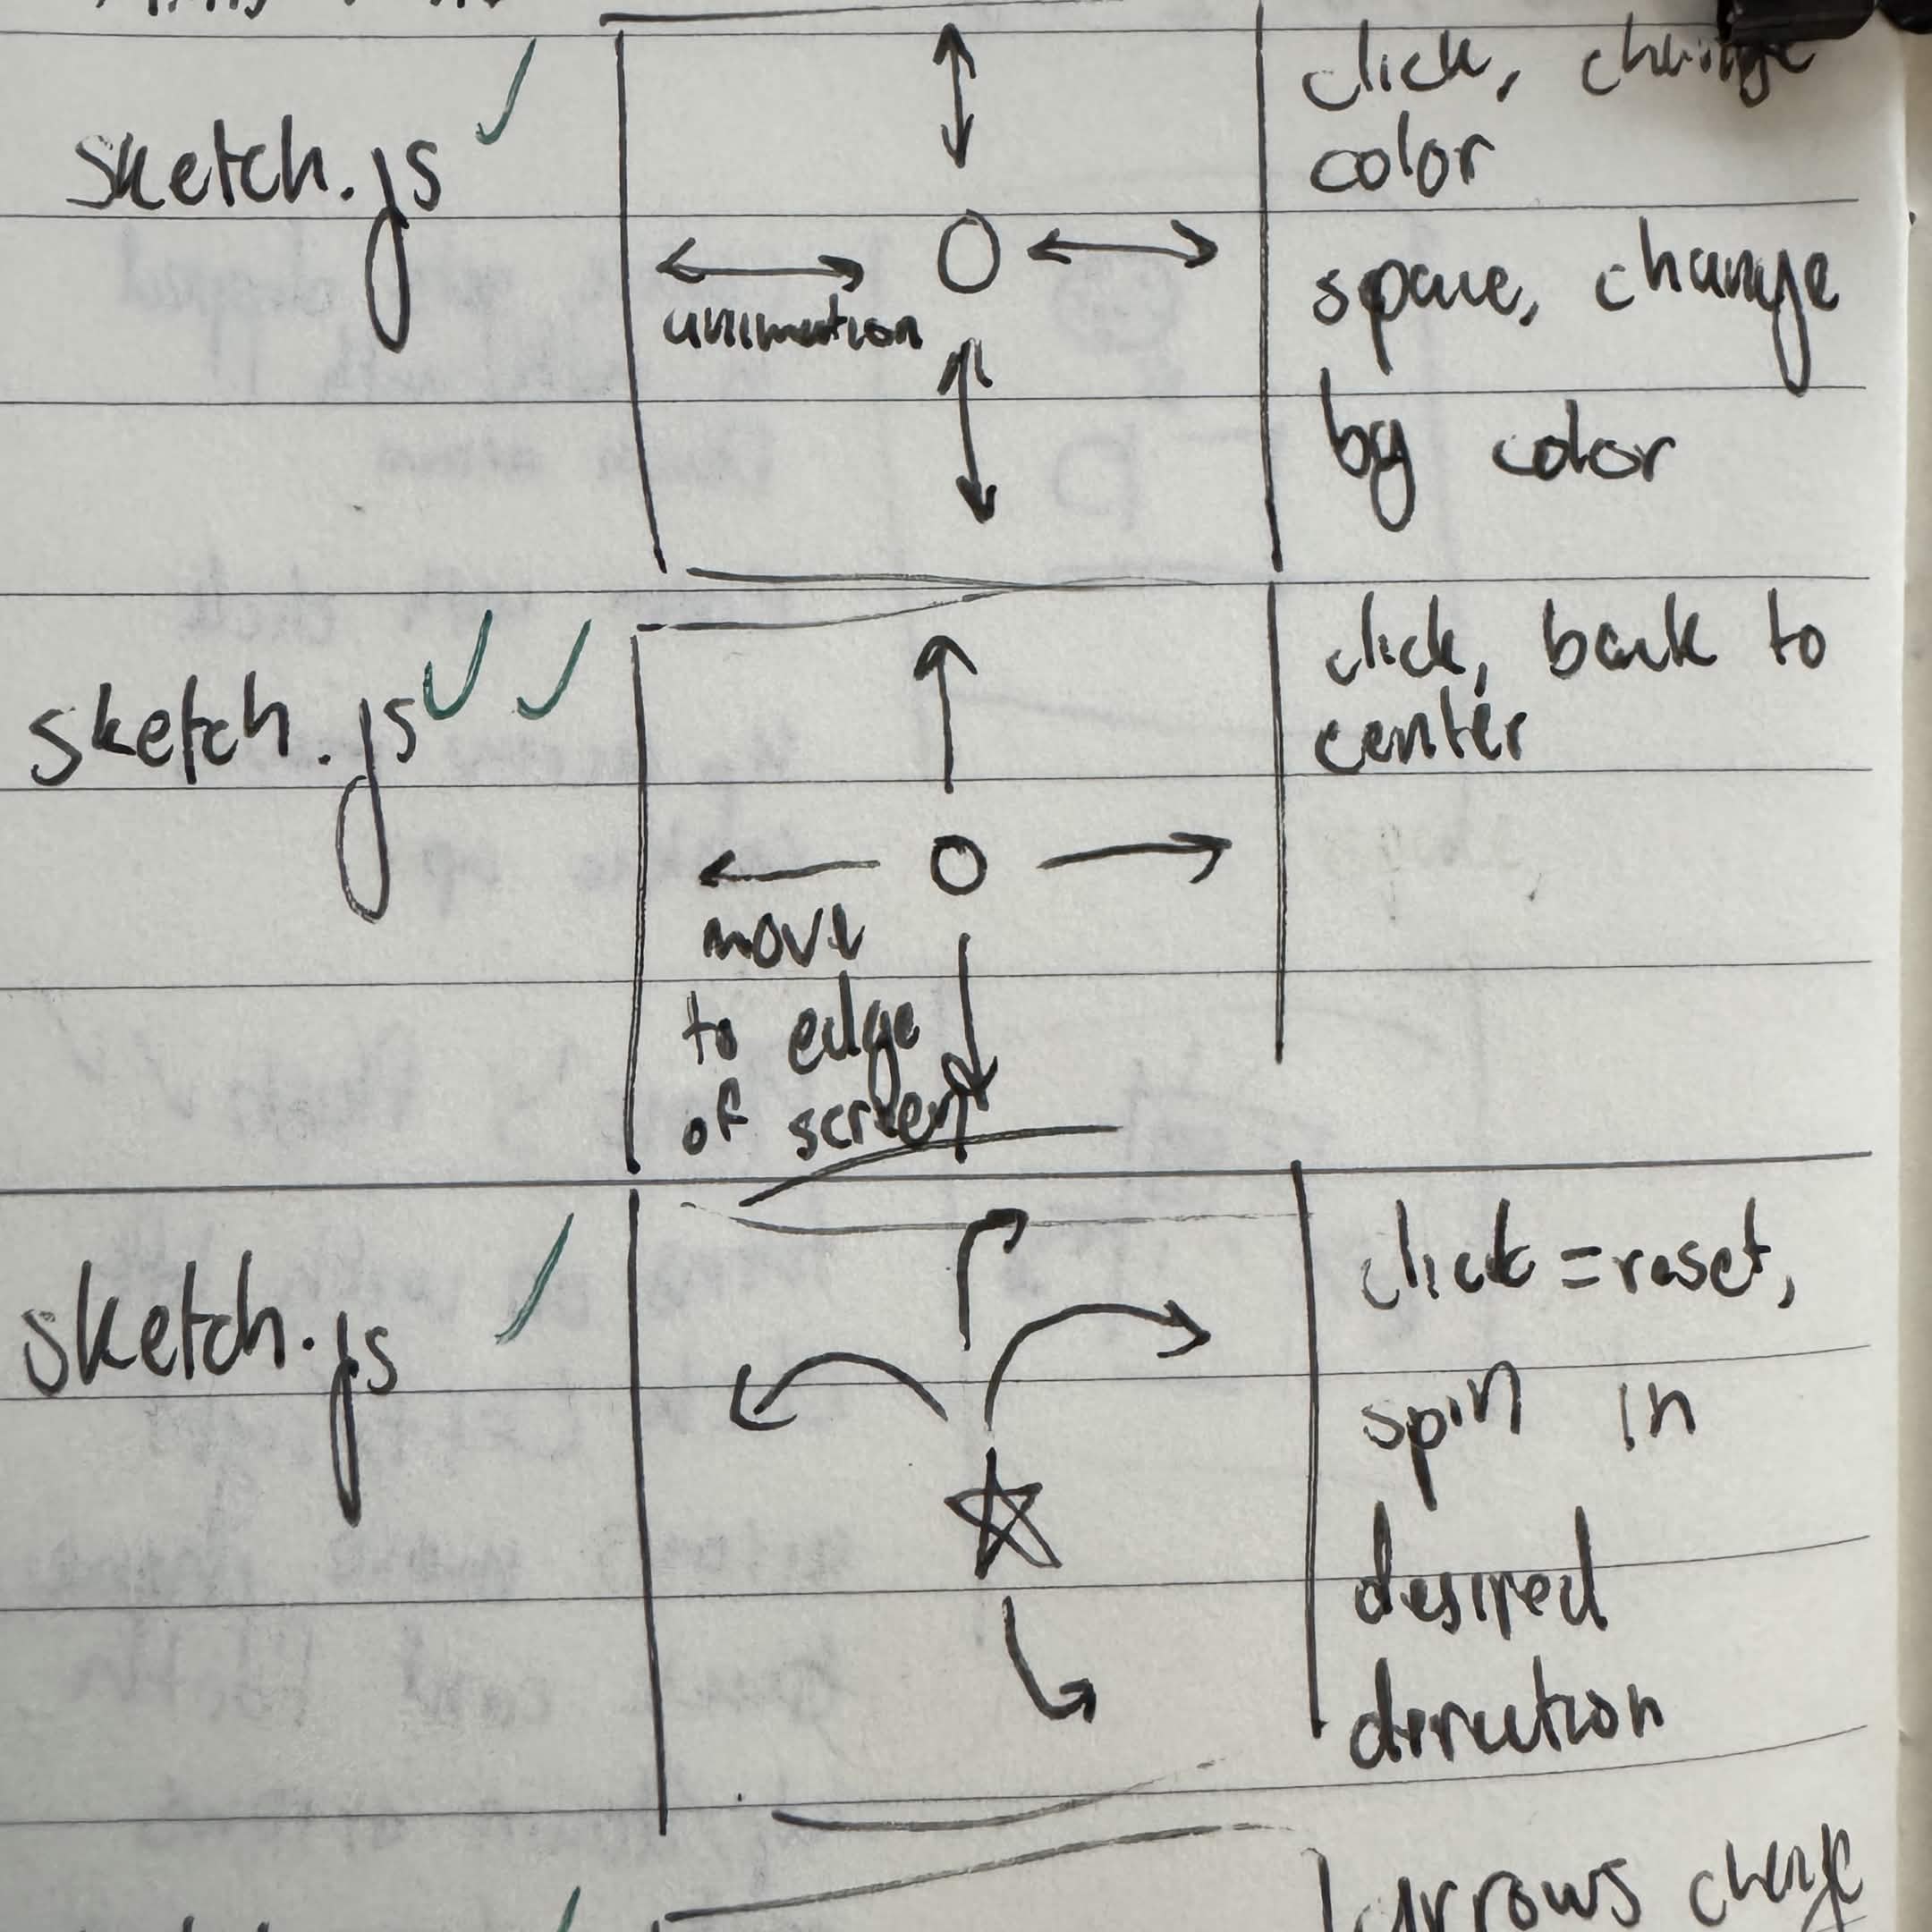 sketch.js
animation
click, change
color
space, change
by color
sketch.js
move
to edge
of screen
click, back to
center
sketch.js
click = reset,
spin in
desired
direction
arrows change